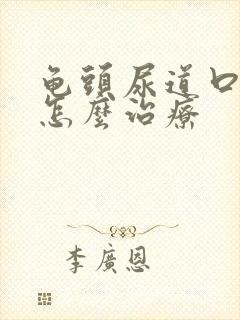 龟頭尿道口
怎麼治療
李廣恩